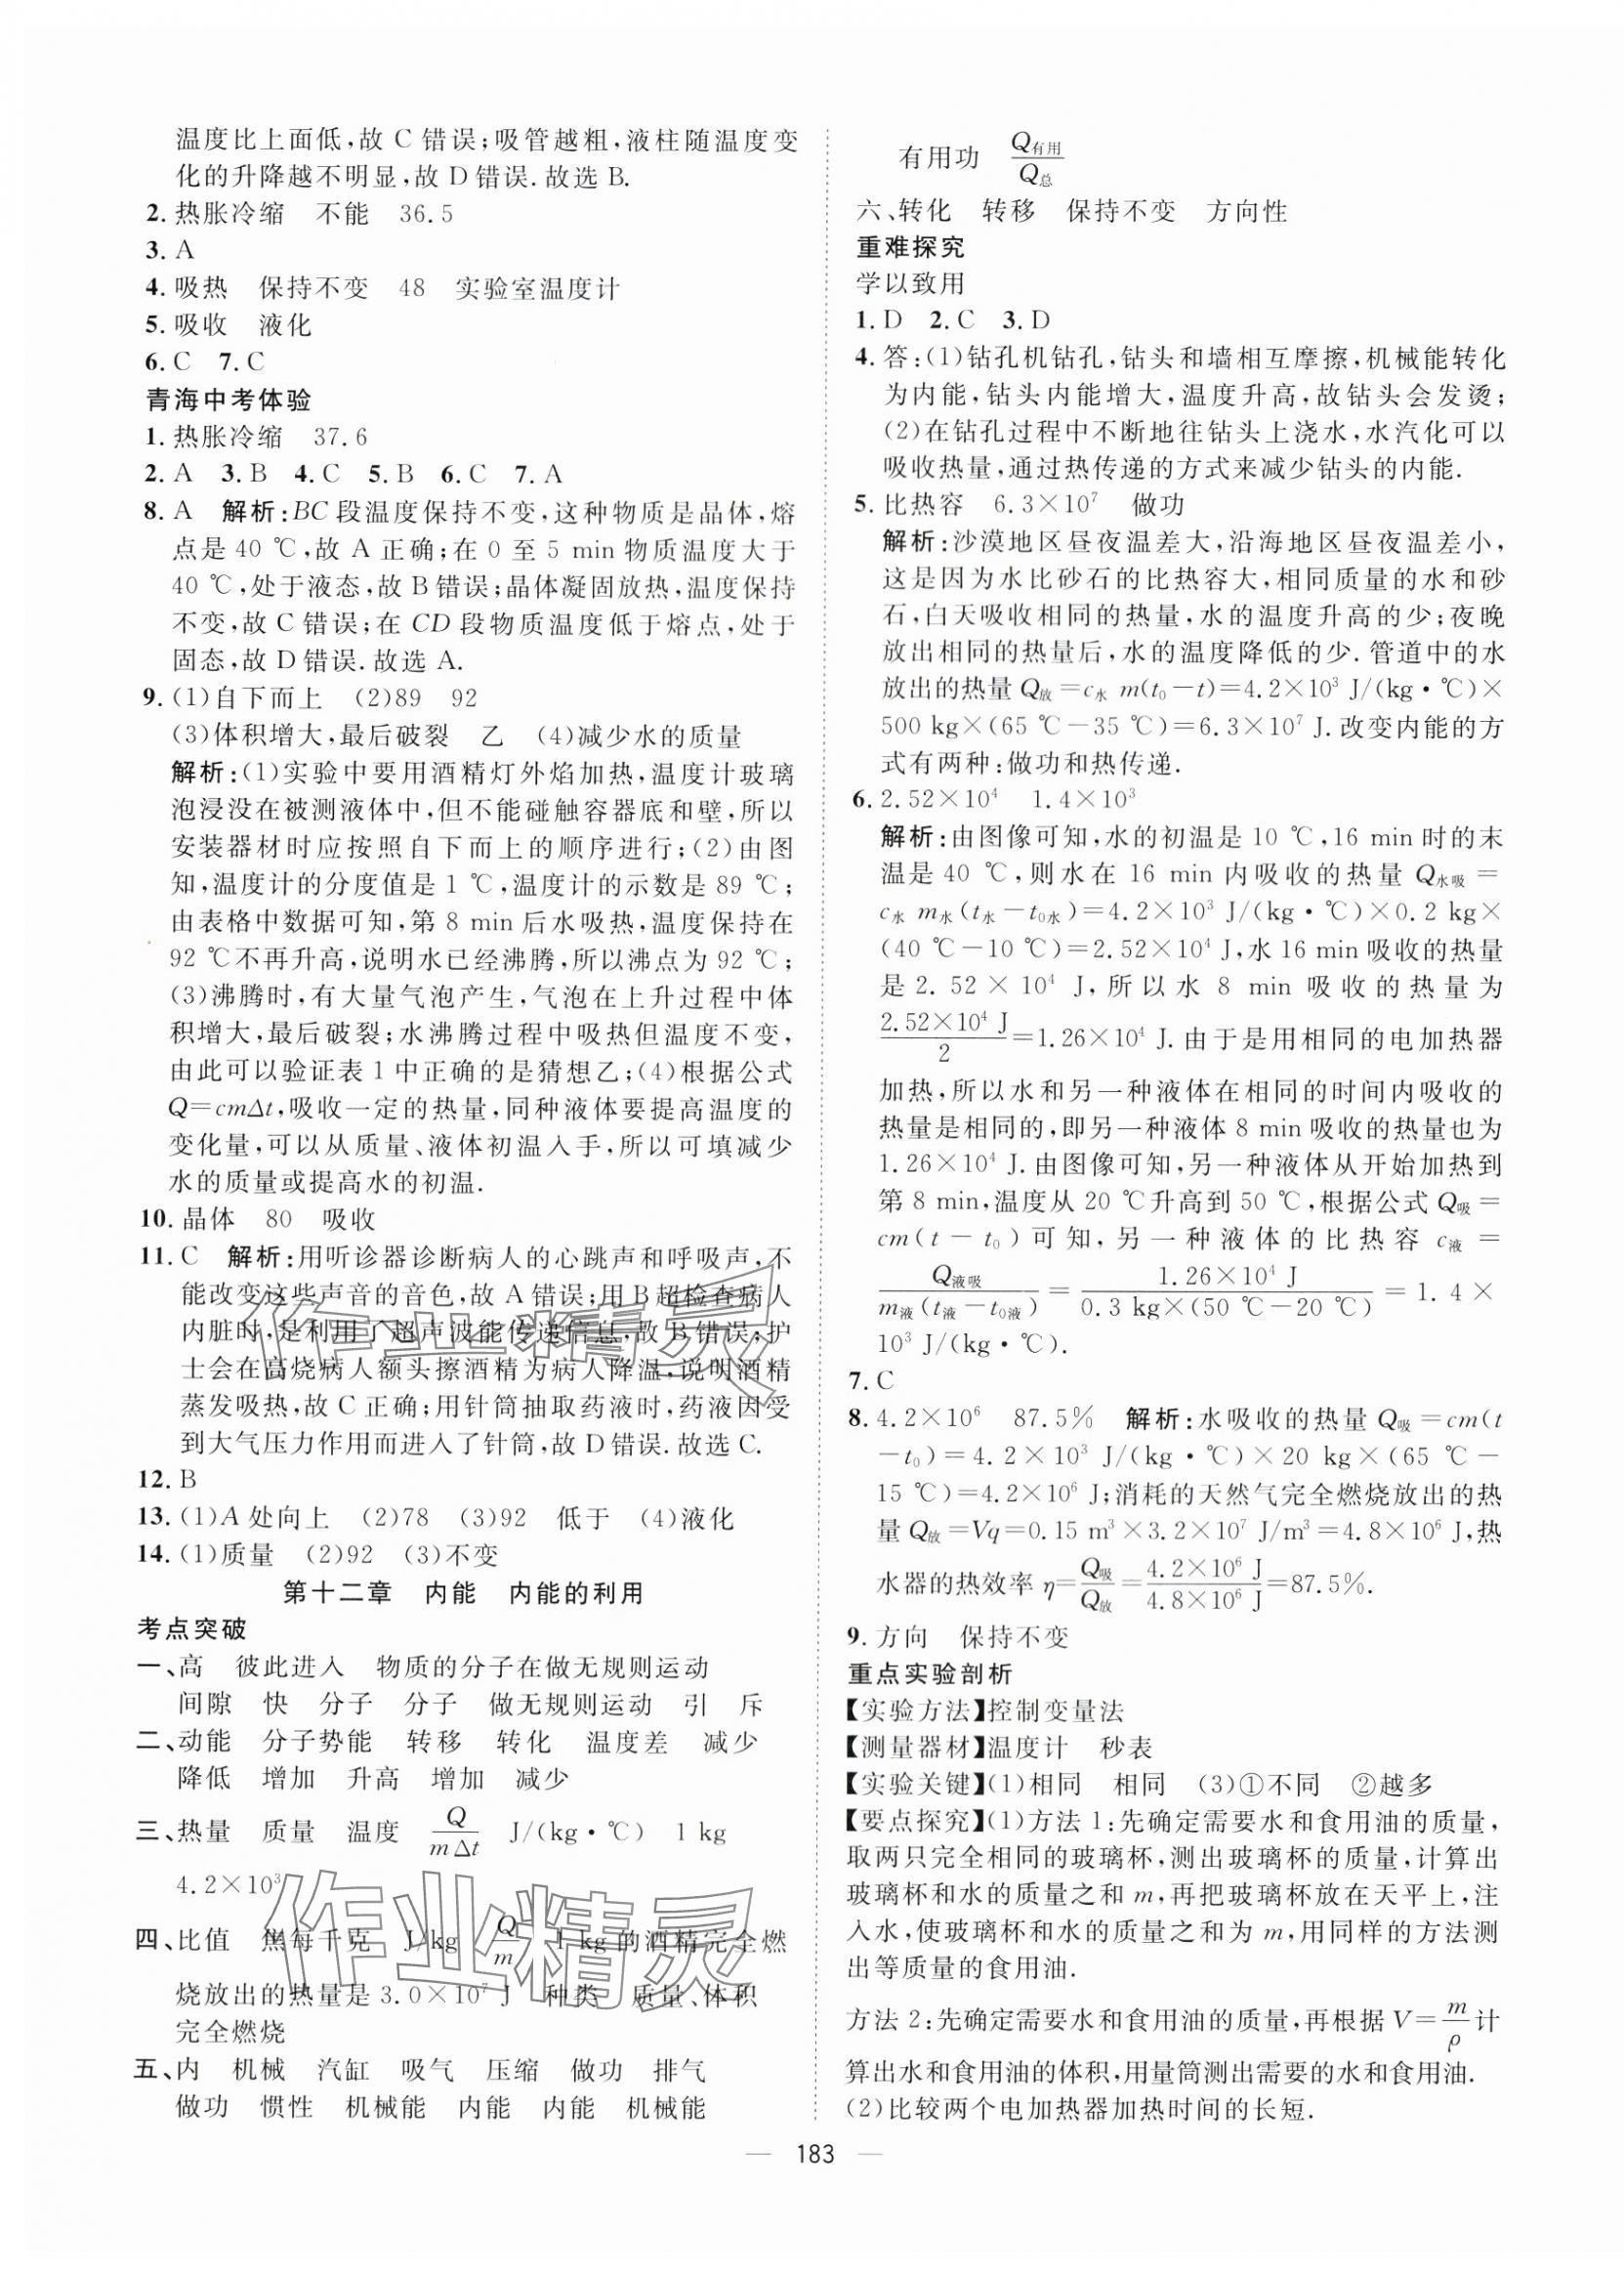 温度比上面低,故 C 错误;吸管越粗,液柱随温度变
化的升降越不明显,故 D 错误.故选 B.
2. 热胀冷缩 不能 36.5
3. A
4. 吸热 保持不变 48 实验室温度计
5. 吸收 液化
6. C 7. C
青海中考体验
1. 热胀冷缩 37.6
2. A 3. B 4. C 5. B 6. C 7. A
8. A 解析:BC 段温度保持不变,这种物质是晶体,熔
点是 40 ℃,故 A 正确;在 0 至 5 min 物质温度大于
40 ℃,处于液态,故 B 错误;晶体凝固放热,温度保持
不变,故 C 错误;在 CD 段物质温度低于熔点,处于
固态,故 D 错误.故选 A.
9. (1)自下而上 (2)89 92
(3)体积增大,最后破裂 乙 (4)减少水的质量
解析:(1)实验中要用酒精灯外焰加热,温度计玻璃
泡浸没在被测液体中,但不能碰触容器底和壁,所以
安装器材时应按照自下而上的顺序进行;(2)由图
知,温度计的分度值是 1 ℃,温度计的示数是 89 ℃;
由表格中数据可知,第 8 min 后水吸热,温度保持在
92 ℃不再升高,说明水已经沸腾,所以沸点为 92 ℃;
(3)沸腾时,有大量气泡产生,气泡在上升过程中体
积增大,最后破裂;水沸腾过程中吸热但温度不变,
由此可以验证表 1 中正确的是猜想乙;(4)根据公式
Q=cmΔt,吸收一定的热量,同种液体要提高温度的
变化量,可以从质量、液体初温入手,所以可填减少
水的质量或提高水的初温.
10. 晶体 80 吸收
11. C 解析:用听诊器诊断病人的心跳声和呼吸声,不
能改变这些声音的音色,故 A 错误;用 B 超检查病人
内脏时,是利用了超声波能传递信息,故 B 错误;护
士会在高烧病人额头擦酒精为病人降温,说明酒精
蒸发吸热,故 C 正确;用针筒抽取药液时,药液因受
到大气压力作用而进入了针筒,故 D 错误.故选 C.
12. B
13. (1)A 处向上 (2)78 (3)92 低于 (4)液化
14. (1)质量 (2)92 (3)不变
第十二章 内能 内能的利用
考点突破
一、高 彼此进入 物质的分子在做无规则运动
间隙 快 分子 分子 做无规则运动 引 斥
二、动能 分子势能 转移 转化 温度差 减少
降低 增加 升高 增加 减少
三、热量 质量 温度 Q/(mΔt) J/(kg·℃) 1 kg
4.2×10³
四、比值 焦每千克 J/kg Q/m 1 kg 的酒精完全燃
烧放出的热量是 3.0×10⁷ J 种类 质量、体积
完全燃烧
五、内 机械 汽缸 吸气 压缩 做功 排气
做功 惯性 机械能 内能 内能 机械能
有用功 Q有用/Q总
六、转化 转移 保持不变 方向性
重难探究
学以致用
1. D 2. C 3. D
4. 答:(1)钻孔机钻孔,钻头和墙相互摩擦,机械能转化
为内能,钻头内能增大,温度升高,故钻头会发烫;
(2)在钻孔过程中不断地往钻头上浇水,水汽化可以
吸收热量,通过热传递的方式来减少钻头的内能.
5. 比热容 6.3×10⁷ 做功
解析:沙漠地区昼夜温差大,沿海地区昼夜温差小,
这是因为水比砂石的比热容大,相同质量的水和砂
石,白天吸收相同的热量,水的温度升高的少;夜晚
放出相同的热量后,水的温度降低的少.管道中的水
放出的热量 Q放=c水 m(t₀-t)=4.2×10³ J/(kg·℃)×
500 kg×(65 ℃-35 ℃)=6.3×10⁷ J.改变内能的方
式有两种:做功和热传递.
6. 2.52×10⁴ 1.4×10³
解析:由图像可知,水的初温是 10 ℃,16 min 时的末
温是 40 ℃,则水在 16 min 内吸收的热量 Q水吸=
c水 m水(t水-t₀水)=4.2×10³ J/(kg·℃)×0.2 kg×
(40 ℃-10 ℃)=2.52×10⁴ J,水 16 min 吸收的热量
是 2.52×10⁴ J,所以水 8 min 吸收的热量为
2.52×10⁴ J/2=1.26×10⁴ J.由于是用相同的电加热器
加热,所以水和另一种液体在相同的时间内吸收的
热量是相同的,即另一种液体 8 min 吸收的热量也为
1.26×10⁴ J.由图像可知,另一种液体从开始加热到
第 8 min,温度从 20 ℃升高到 50 ℃,根据公式 Q吸=
cm(t-t₀)可知,另一种液体的比热容 c液=
Q液吸/(m液(t液-t₀液))=1.26×10⁴ J/(0.3 kg×(50 ℃-20 ℃))=1.4×
10³ J/(kg·℃).
7. C
8. 4.2×10⁶ 87.5% 解析:水吸收的热量 Q吸=cm(t
-t₀)=4.2×10³ J/(kg·℃)×20 kg×(65 ℃-
15 ℃)=4.2×10⁶ J;消耗的天然气完全燃烧放出的热
量 Q放=Vq=0.15 m³×3.2×10⁷ J/m³=4.8×10⁶ J,热
水器的热效率 η=Q吸/Q放=4.2×10⁶ J/4.8×10⁶ J=87.5%.
9. 方向 保持不变
重点实验剖析
【实验方法】控制变量法
【测量器材】温度计 秒表
【实验关键】(1)相同 相同 (3)①不同 ②越多
【要点探究】(1)方法 1:先确定需要水和食用油的质量,
取两只完全相同的玻璃杯,测出玻璃杯的质量,计算出
玻璃杯和水的质量之和 m,再把玻璃杯放在天平上,注
入水,使玻璃杯和水的质量之和为 m,用同样的方法测
出等质量的食用油.
方法 2:先确定需要水和食用油的质量,再根据 V=m/ρ计
算出水和食用油的体积,用量筒测出需要的水和食用油.
(2)比较两个电加热器加热时间的长短.
— 183 —
作业精灵
作业精灵